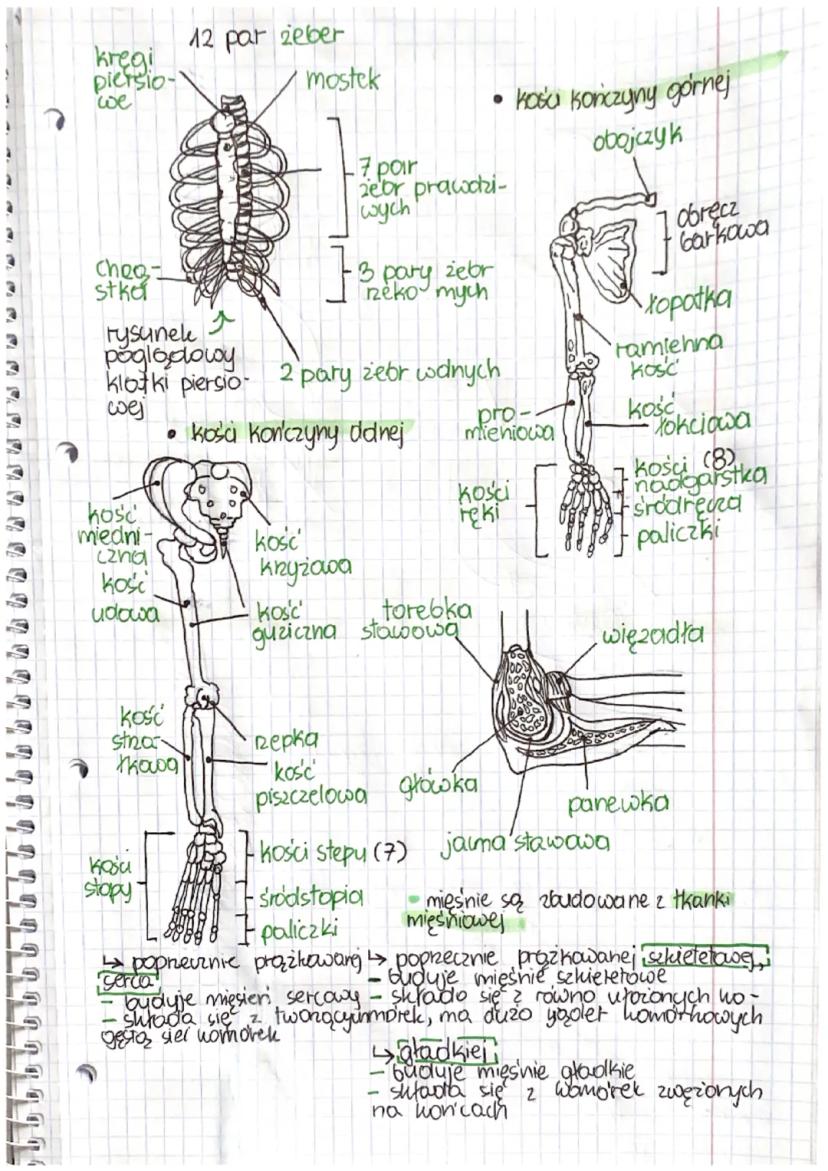 12 par żeber
kręgi
piersio-
we
mostek
7 par
żebr prawdzi-
wych
chrzą-
stka
3 pary żebr
rzeko mych
rysunek
poglądowy
klatki piersio-
wej
2 pary żebr wolnych
• kości kończyny górnej
obojczyk
obręcz
barkowa
łopatka
ramienna
kość
pro-
mieniowa
kość
łokciowa
kości
ręki
kości (8)
nadgarstka
śródręcza
paliczki
• kości kończyny dolnej
kość
miedni-
czna
kość
krzyżowa
kość
udowa
kość
guziczna
kość
strza-
łkowa
rzepka
kość
piszczelowa
kości
stopy
kości stepu (7)
śródstopia
paliczki
torebka
stawowa
więzadła
główka
panewka
jama stawowa
• mięśnie są zbudowane z tkanki
mięśniowej
↳ poprzecznie prążkowanej
serca
- buduje mięsień sercowy
- składa się z tworzących
gęstą sieć komórek
↳ poprzecznie prążkowanej szkieletowej,
- buduje mięśnie szkieletowe
- składa się z równo ułożonych ko-
mórek, ma dużo jąder komórkowych
↳ gładkiej
- buduje mięśnie gładkie
- składa się z komórek zwężonych
na końcach